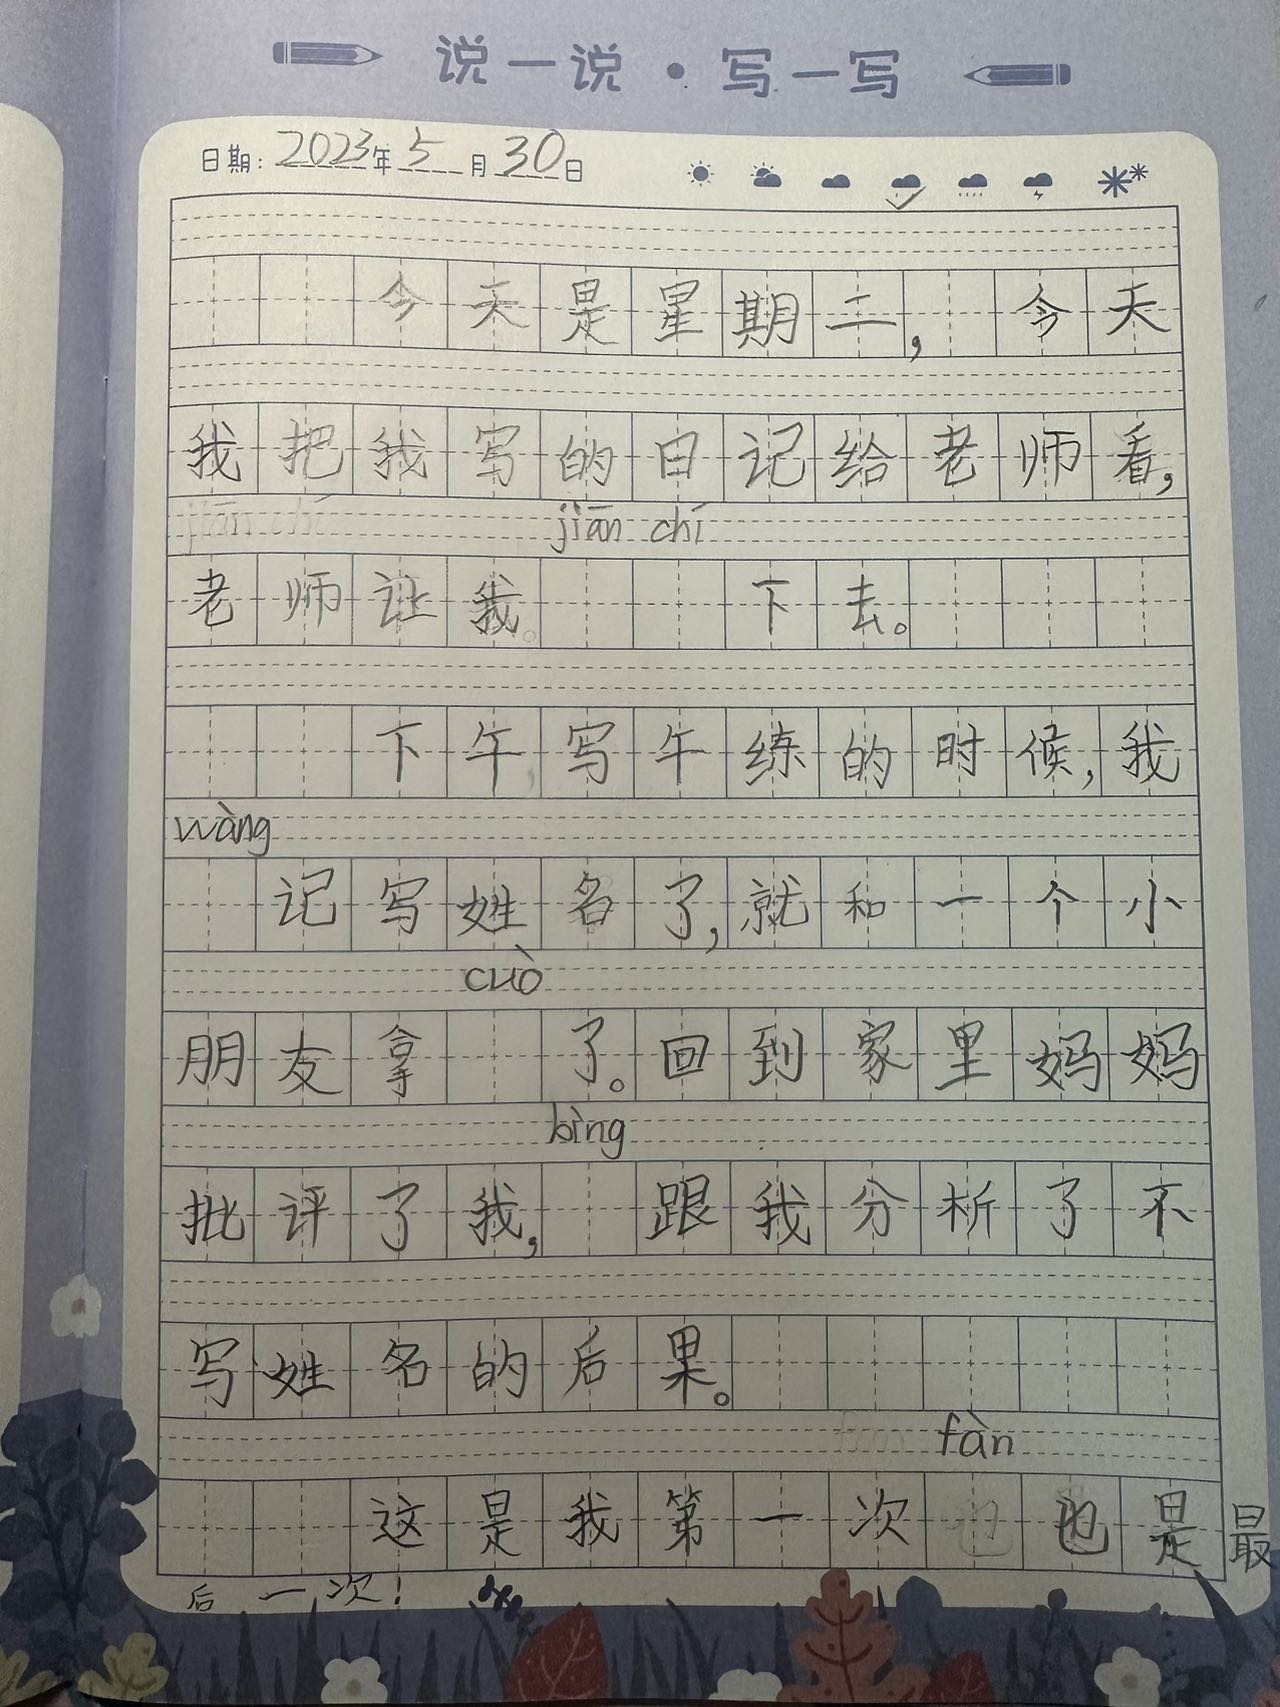 说一说·写一写
日期：2023年5月30日
今天是星期二，今天
我把我写的日记给老师看，
jiān chí
老师让我 下去。
下午写午练的时候，我
wàng
记写姓名了，就和一个小
cuò
朋友拿 了。回到家里妈妈
bìng
批评了我， 跟我分析了不
写姓名的后果。
fàn
这是我第一次 也是最
后一次！